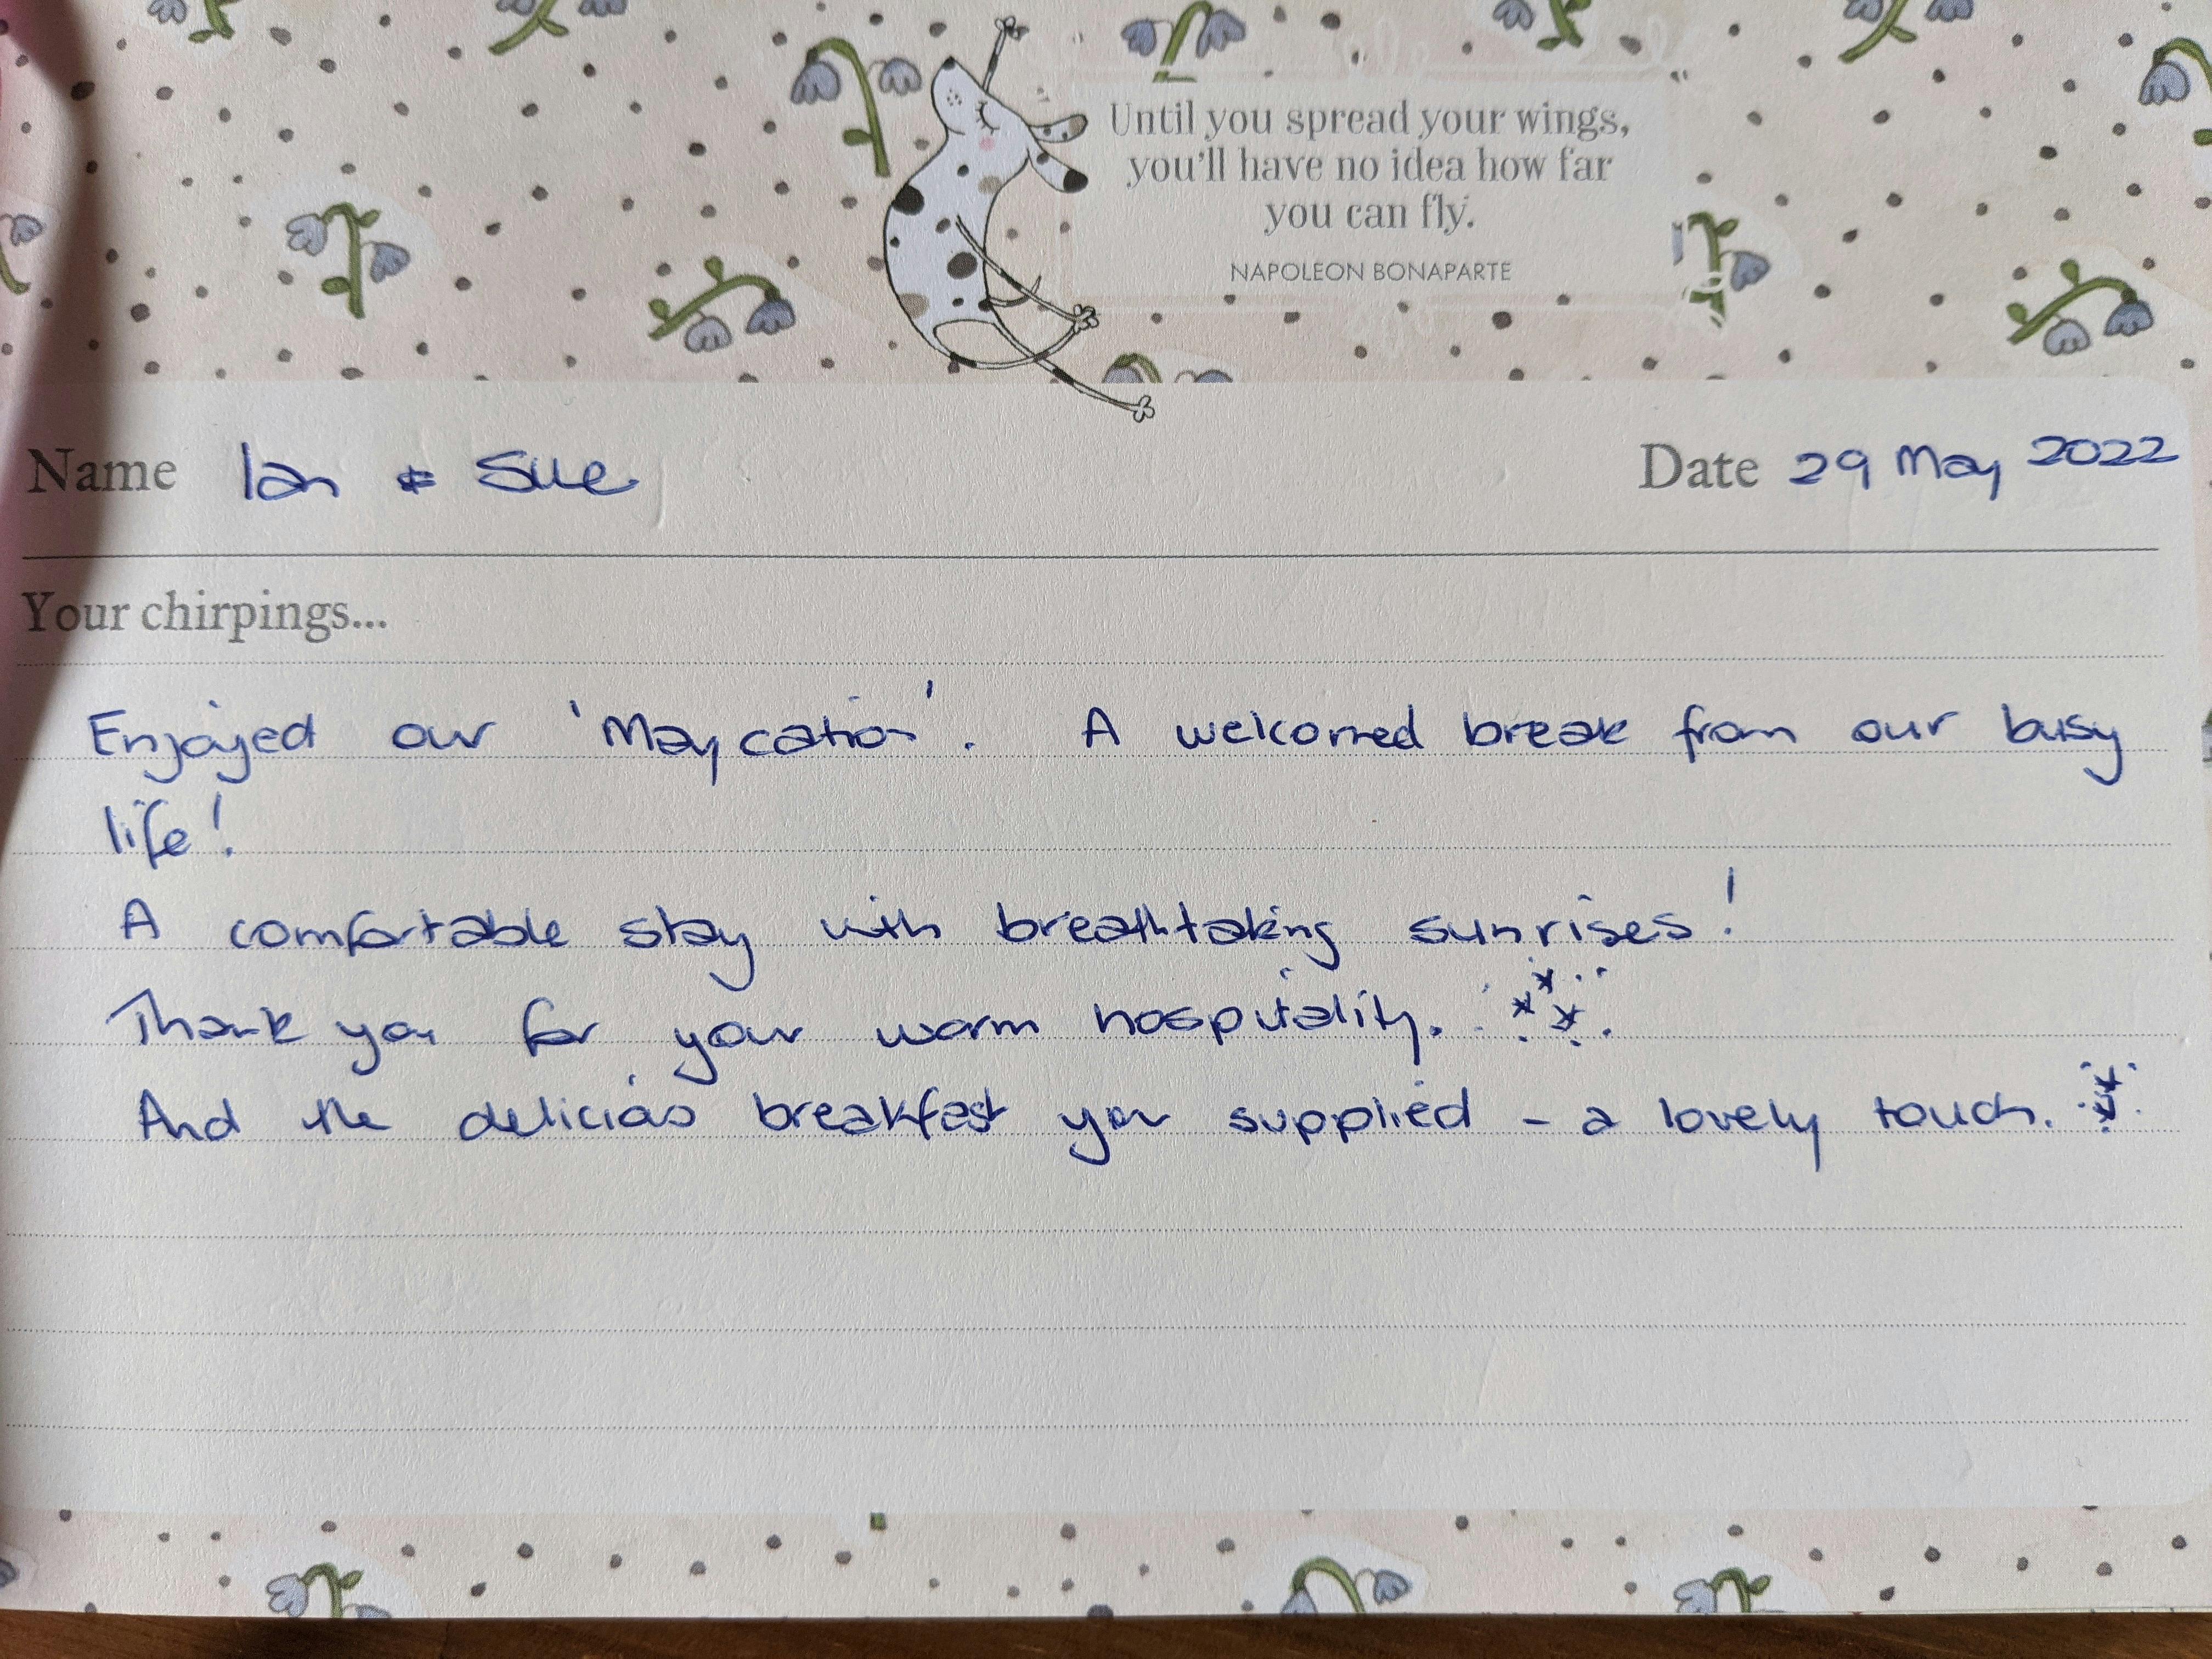 Until you spread your wings,
you'll have no idea how far
you can fly.
NAPOLEON BONAPARTE
Name Ian & Sue
Date 29 May 2022
Your chirpings...
Enjoyed our 'Maycation'. A welcomed break from our busy
life!
A comfortable stay with breathtaking sunrises!
Thank you for your warm hospitality.
And the delicious breakfast you supplied - a lovely touch.